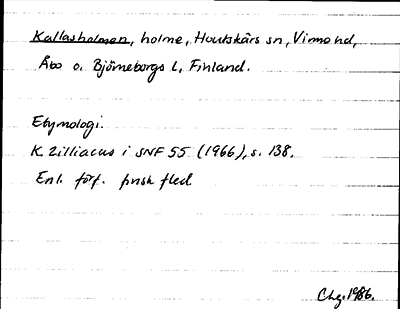 Kallasholmen, holme, Houtskärs sn, Virmo hd,
Åbo o. Björneborgs l, Finland.
Etymologi.
K. Zilliacus i SNF 55 (1966), s. 138.
Enl. förf. finsk fled
Chg. 1986.